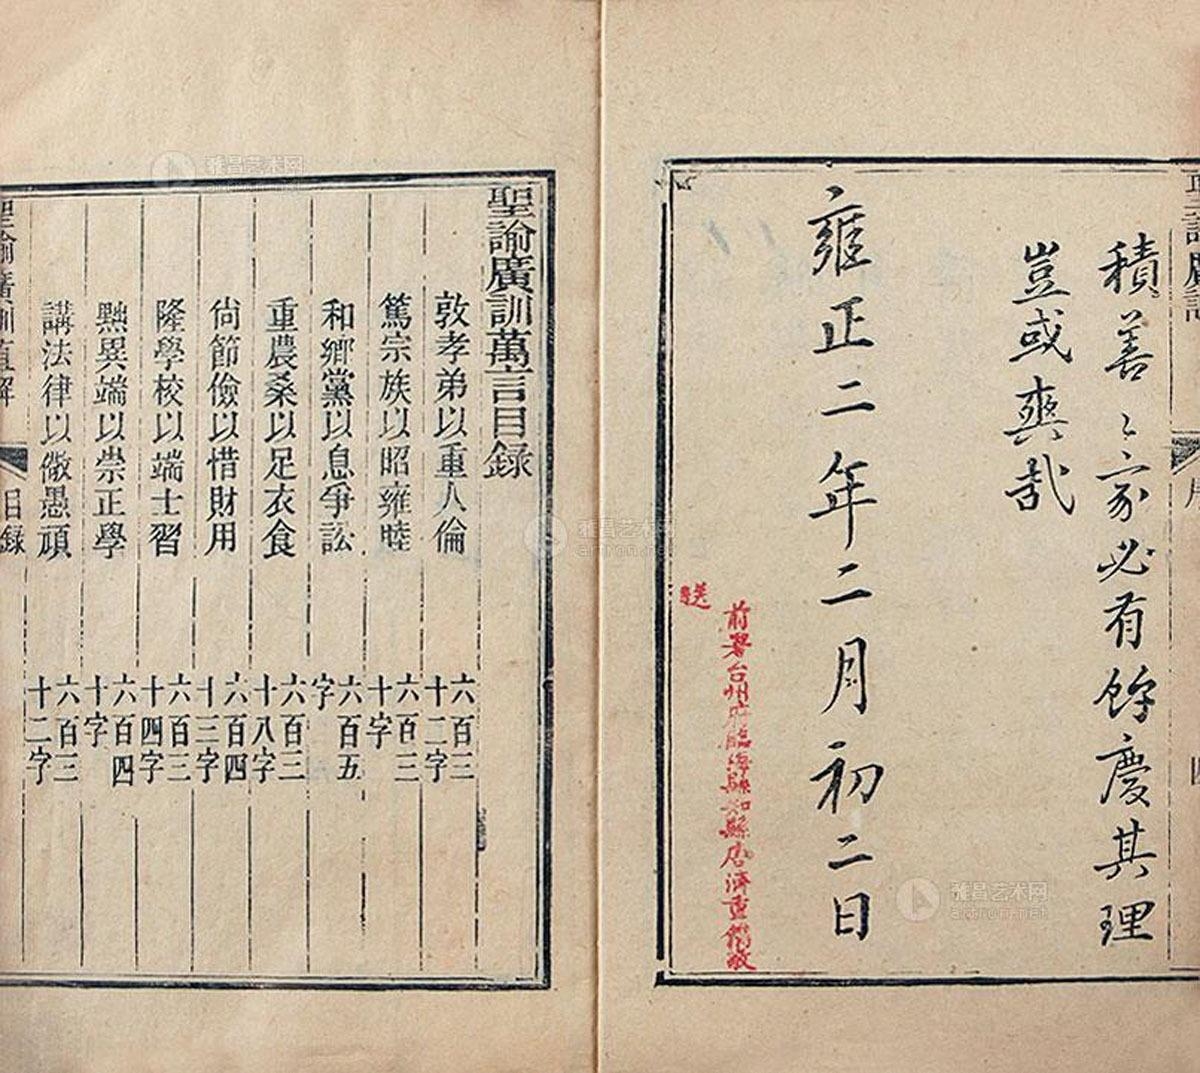 積善〻家必有餘慶其理
豈或爽哉
雍正二年二月初二日
前署台州府臨海縣知縣
聖諭廣訓萬言目録
敦孝弟以重人倫 六百三十二字
篤宗族以昭雍睦 六百三十字
和鄉黨以息爭訟 六百五字
重農桑以足衣食 六百三十八字
尙節儉以惜財用 六百四十三字
隆學校以端士習 六百三十四字
黜異端以崇正學 六百四十字
講法律以儆愚頑 六百三十二字
聖諭廣訓直解
目録
雅昌艺术网
雅昌艺术网
artron.net
雅昌艺术网
artron.net